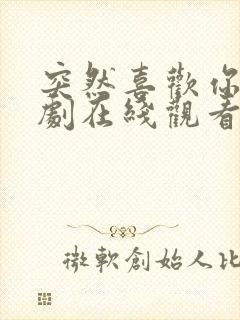 突然喜歡你
劇在綫觀看
微軟創始人比